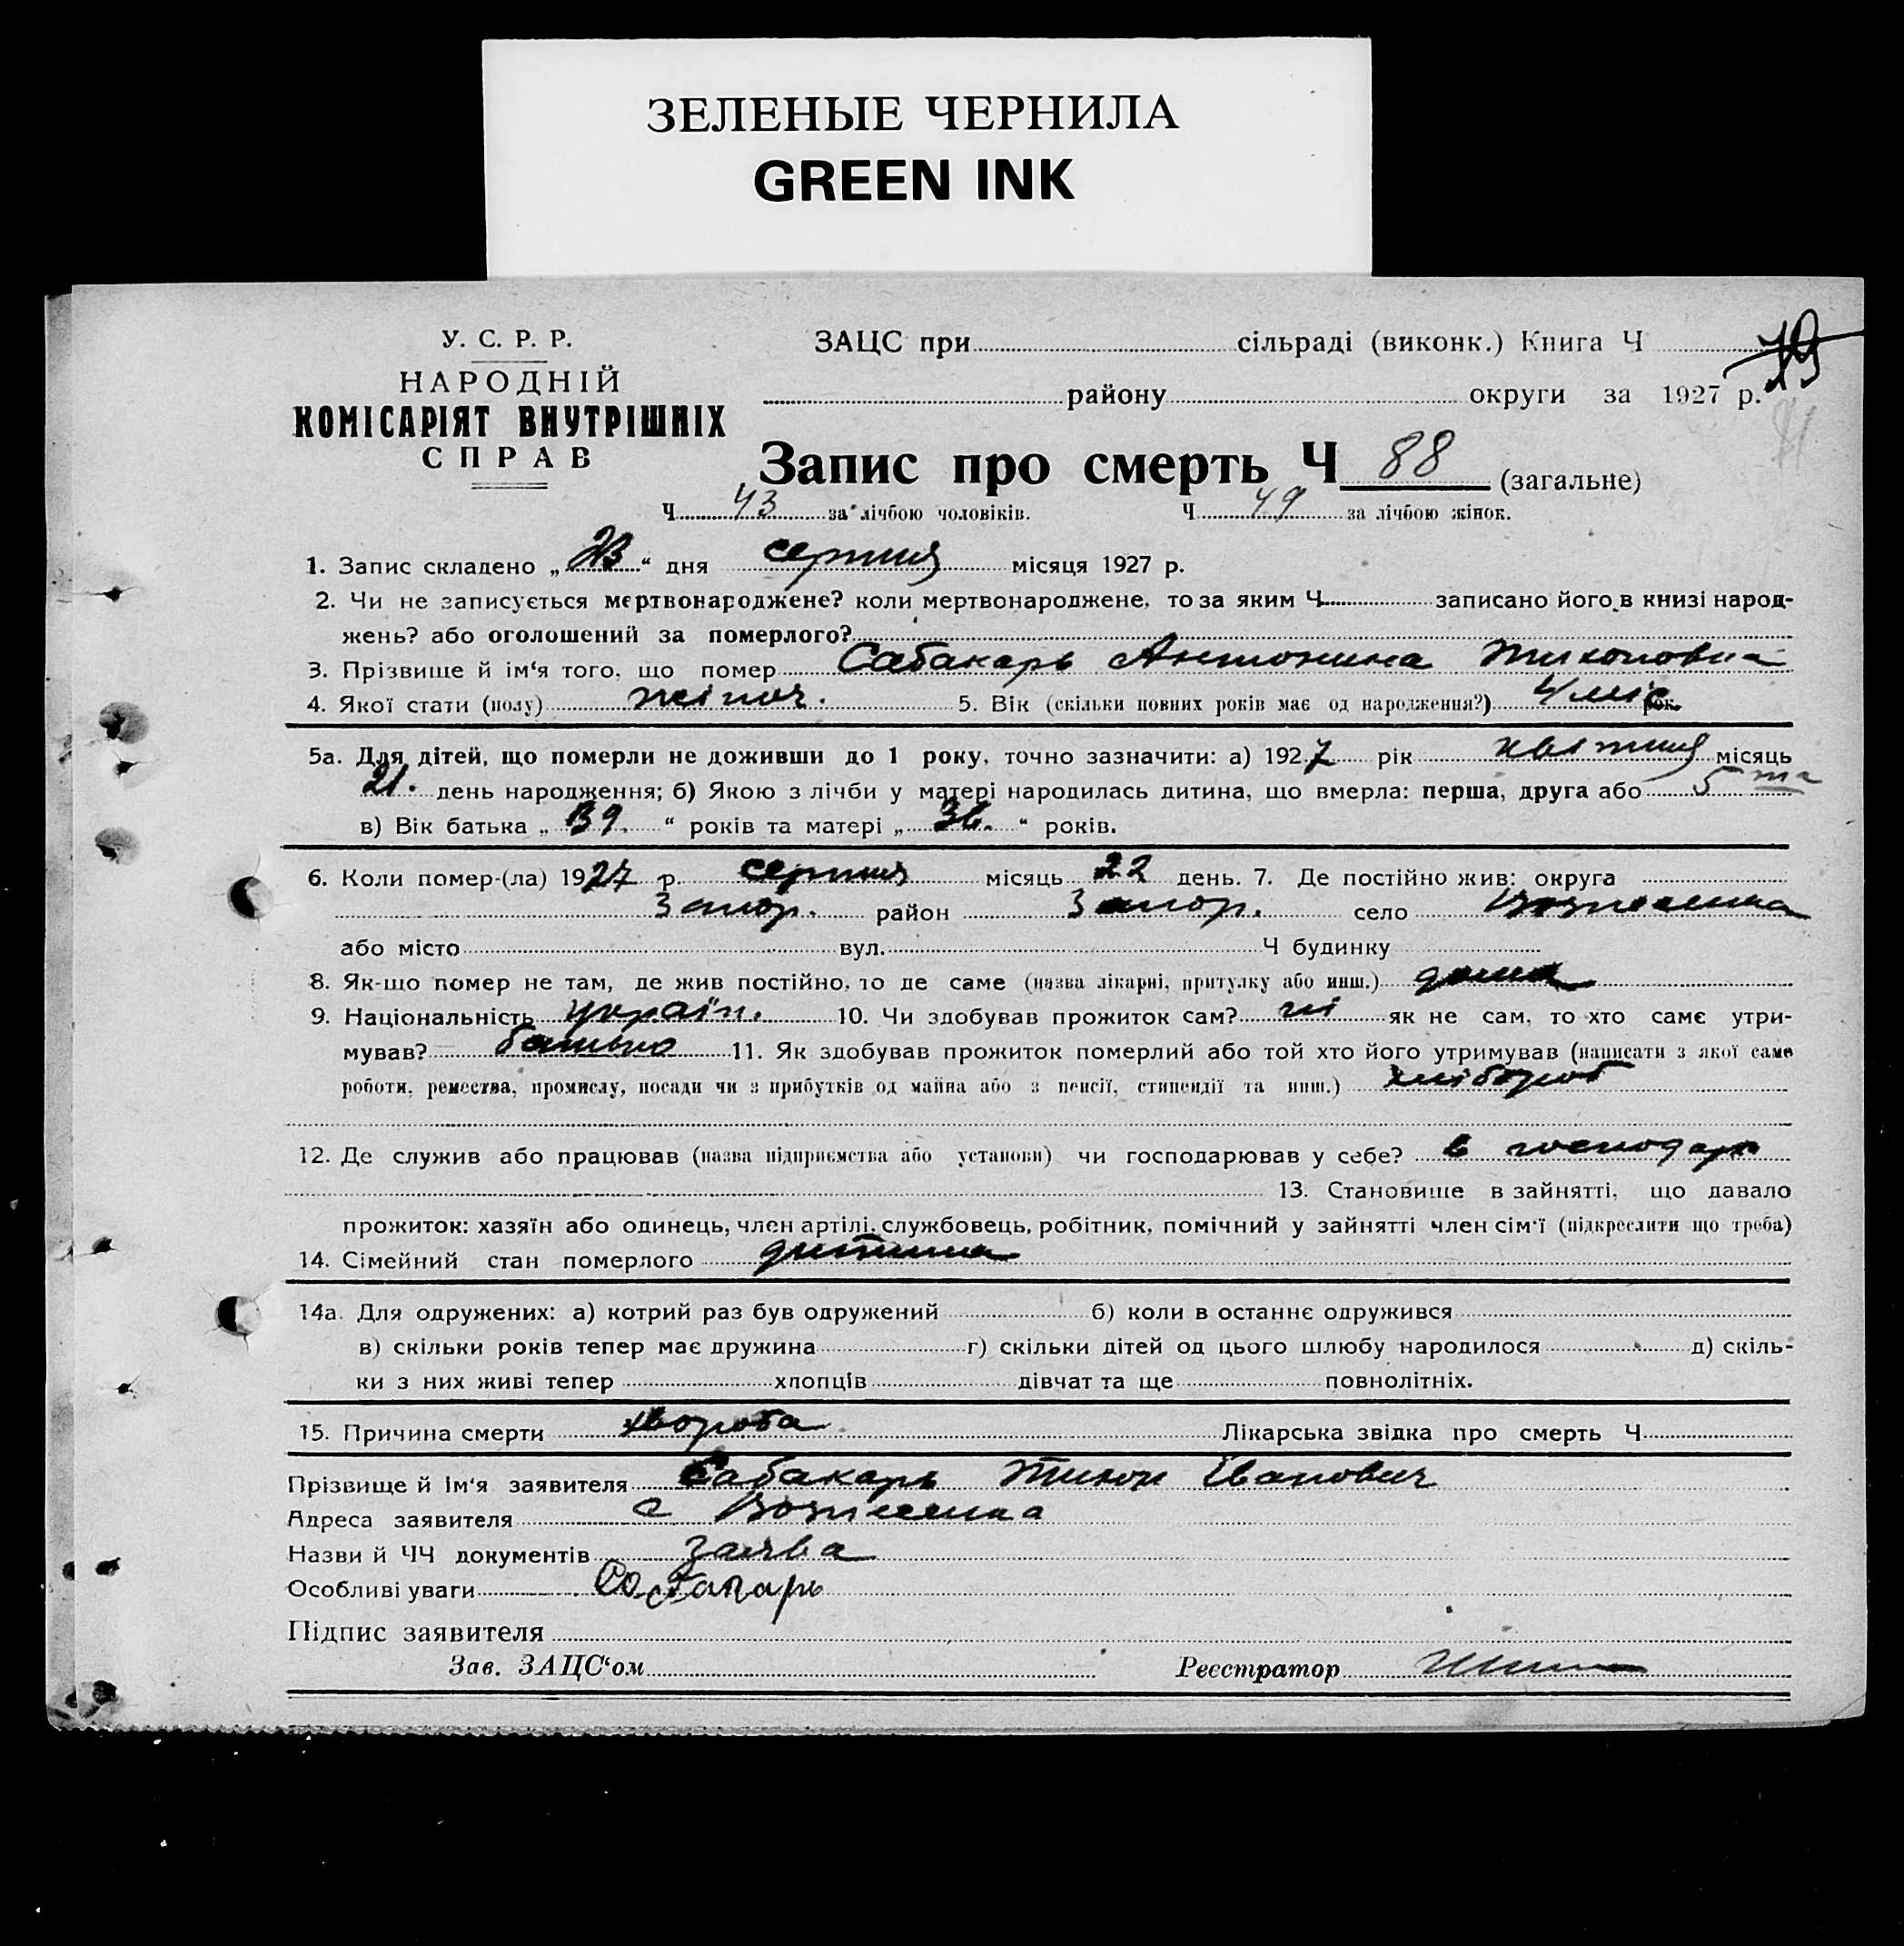 ЗЕЛЕНЫЕ ЧЕРНИЛА
GREEN INK
У. С. Р. Р.
НАРОДНІЙ
КОМІСАРІЯТ ВНУТРІШНІХ
СПРАВ
ЗАЦС при сільраді (виконк.) Книга Ч
району округи за 1927 р.
Запис про смерть Ч 88 (загальне)
Ч 43 за лічбою чоловіків. Ч 49 за лічбою жінок.
1. Запис складено „23“ дня серпня місяця 1927 р.
2. Чи не записується мертвонароджене? коли мертвонароджене, то за яким Ч записано його в книзі народ-
жень? або оголошений за померлого?
3. Прізвище й ім‘я того, що помер Сабакарь Антонина Тихоновна
4. Якої стати (полу) жіноч. 5. Вік (скільки повних років має од народження?) 4 міс рок.
5а. Для дітей, що померли не доживши до 1 року, точно зазначити: а) 1927 рік квітня місяць
21. день народження; б) Якою з лічби у матері народилась дитина, що вмерла: перша, друга або 5 та
в) Вік батька „39.“ років та матері „36.“ років.
6. Коли помер-(ла) 1927 р. серпня місяць 22 день. 7. Де постійно жив: округа
Запор. район Запор. село Вознесенка
або місто вул. Ч будинку
8. Як-що помер не там, де жив постійно, то де саме (назва лікарні, притулку або инш.) дома
9. Національність україн. 10. Чи здобував прожиток сам? ні як не сам, то хто саме утри-
мував? батько 11. Як здобував прожиток померлий або той хто його утримував (написати з якої саме
роботи, ремества, промислу, посади чи з прибутків од майна або з пенсії, стипендії та инш.) хлібороб
12. Де служив або працював (назва підприємства або установи) чи господарював у себе? в господар
13. Становище в зайнятті, що давало
прожиток: хазяїн або одинець, член артілі, службовець, робітник, помічний у зайнятті член сім‘ї (підкреслити що треба)
14. Сімейний стан померлого дитина
14а. Для одружених: а) котрий раз був одружений б) коли в останнє одружився
в) скільки років тепер має дружина г) скільки дітей од цього шлюбу народилося д) скіль-
ки з них живі тепер хлопців дівчат та ще повнолітніх.
15. Причина смерти хвороба Лікарська звідка про смерть Ч
Прізвище й ім‘я заявителя Сабакарь Тихон Іванович
Адреса заявителя с Вознесенка
Назви й ЧЧ документів заява
Особливі уваги
Підпис заявителя
Зав. ЗАЦС‘ом Реєстратор